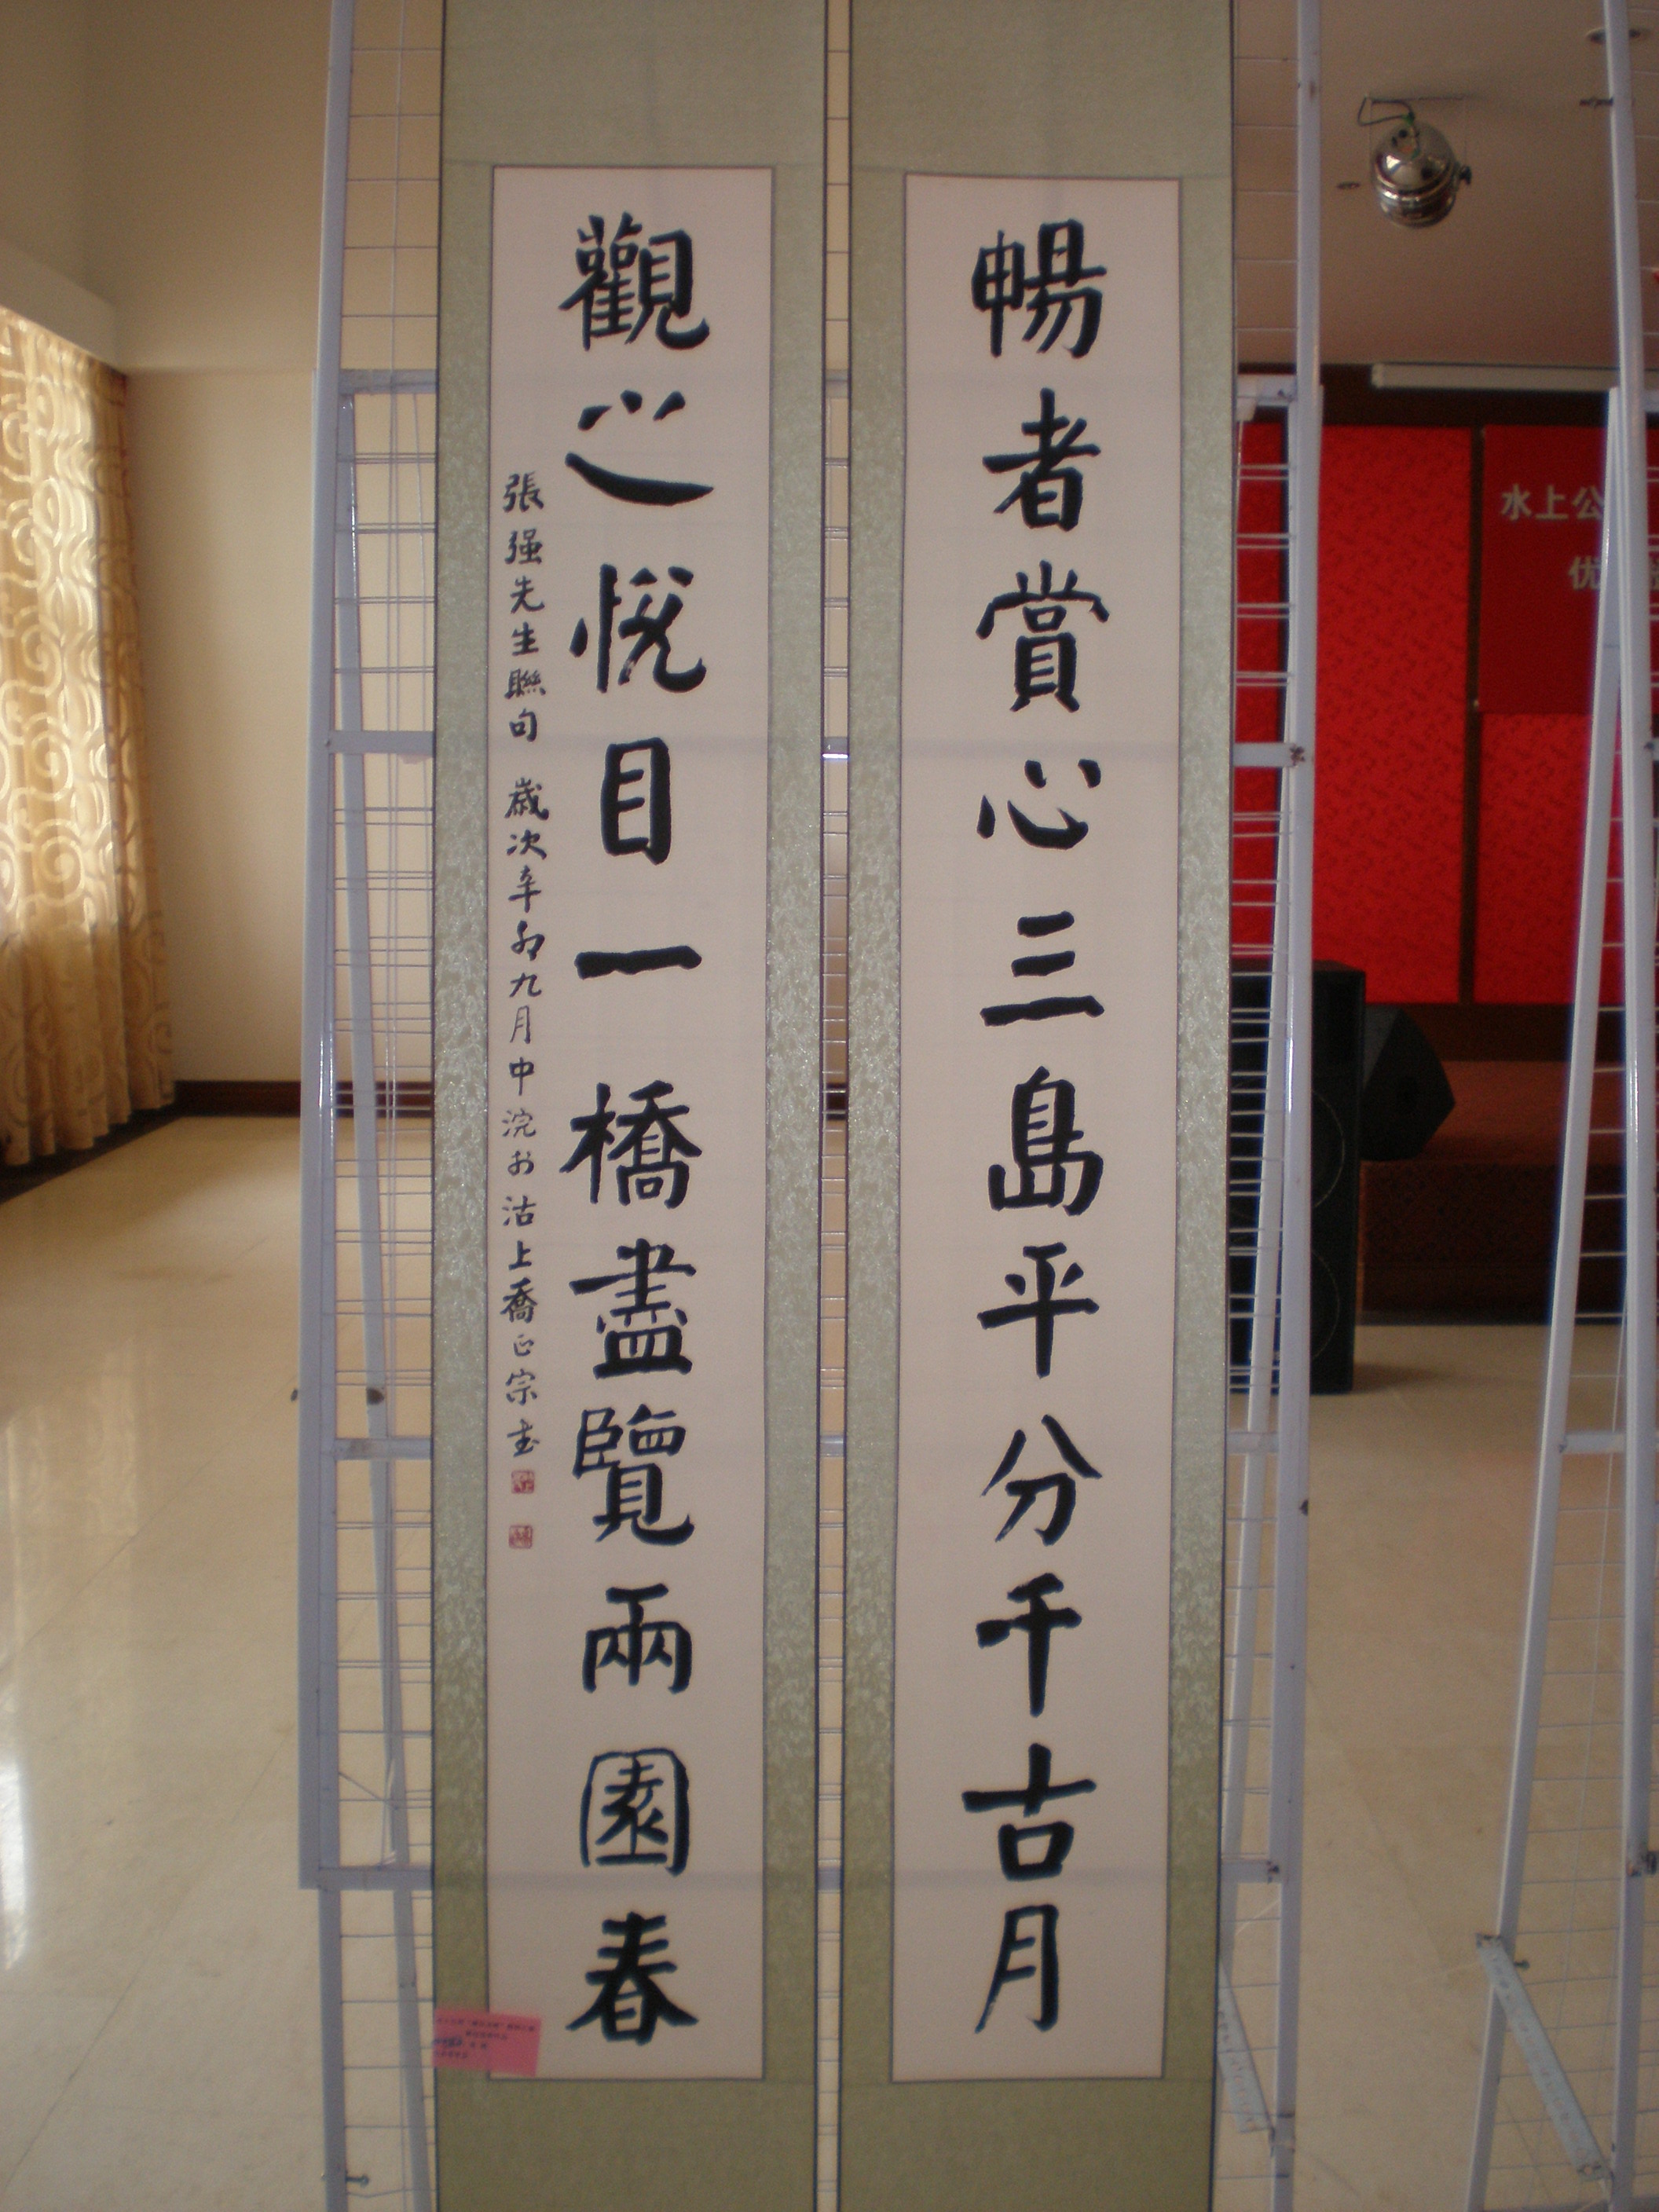 暢者賞心三島平分千古月
觀之悅目一橋盡覽兩園春
張强先生聯句 歲次辛卯九月中浣於沽上喬正宗書
水上公
优